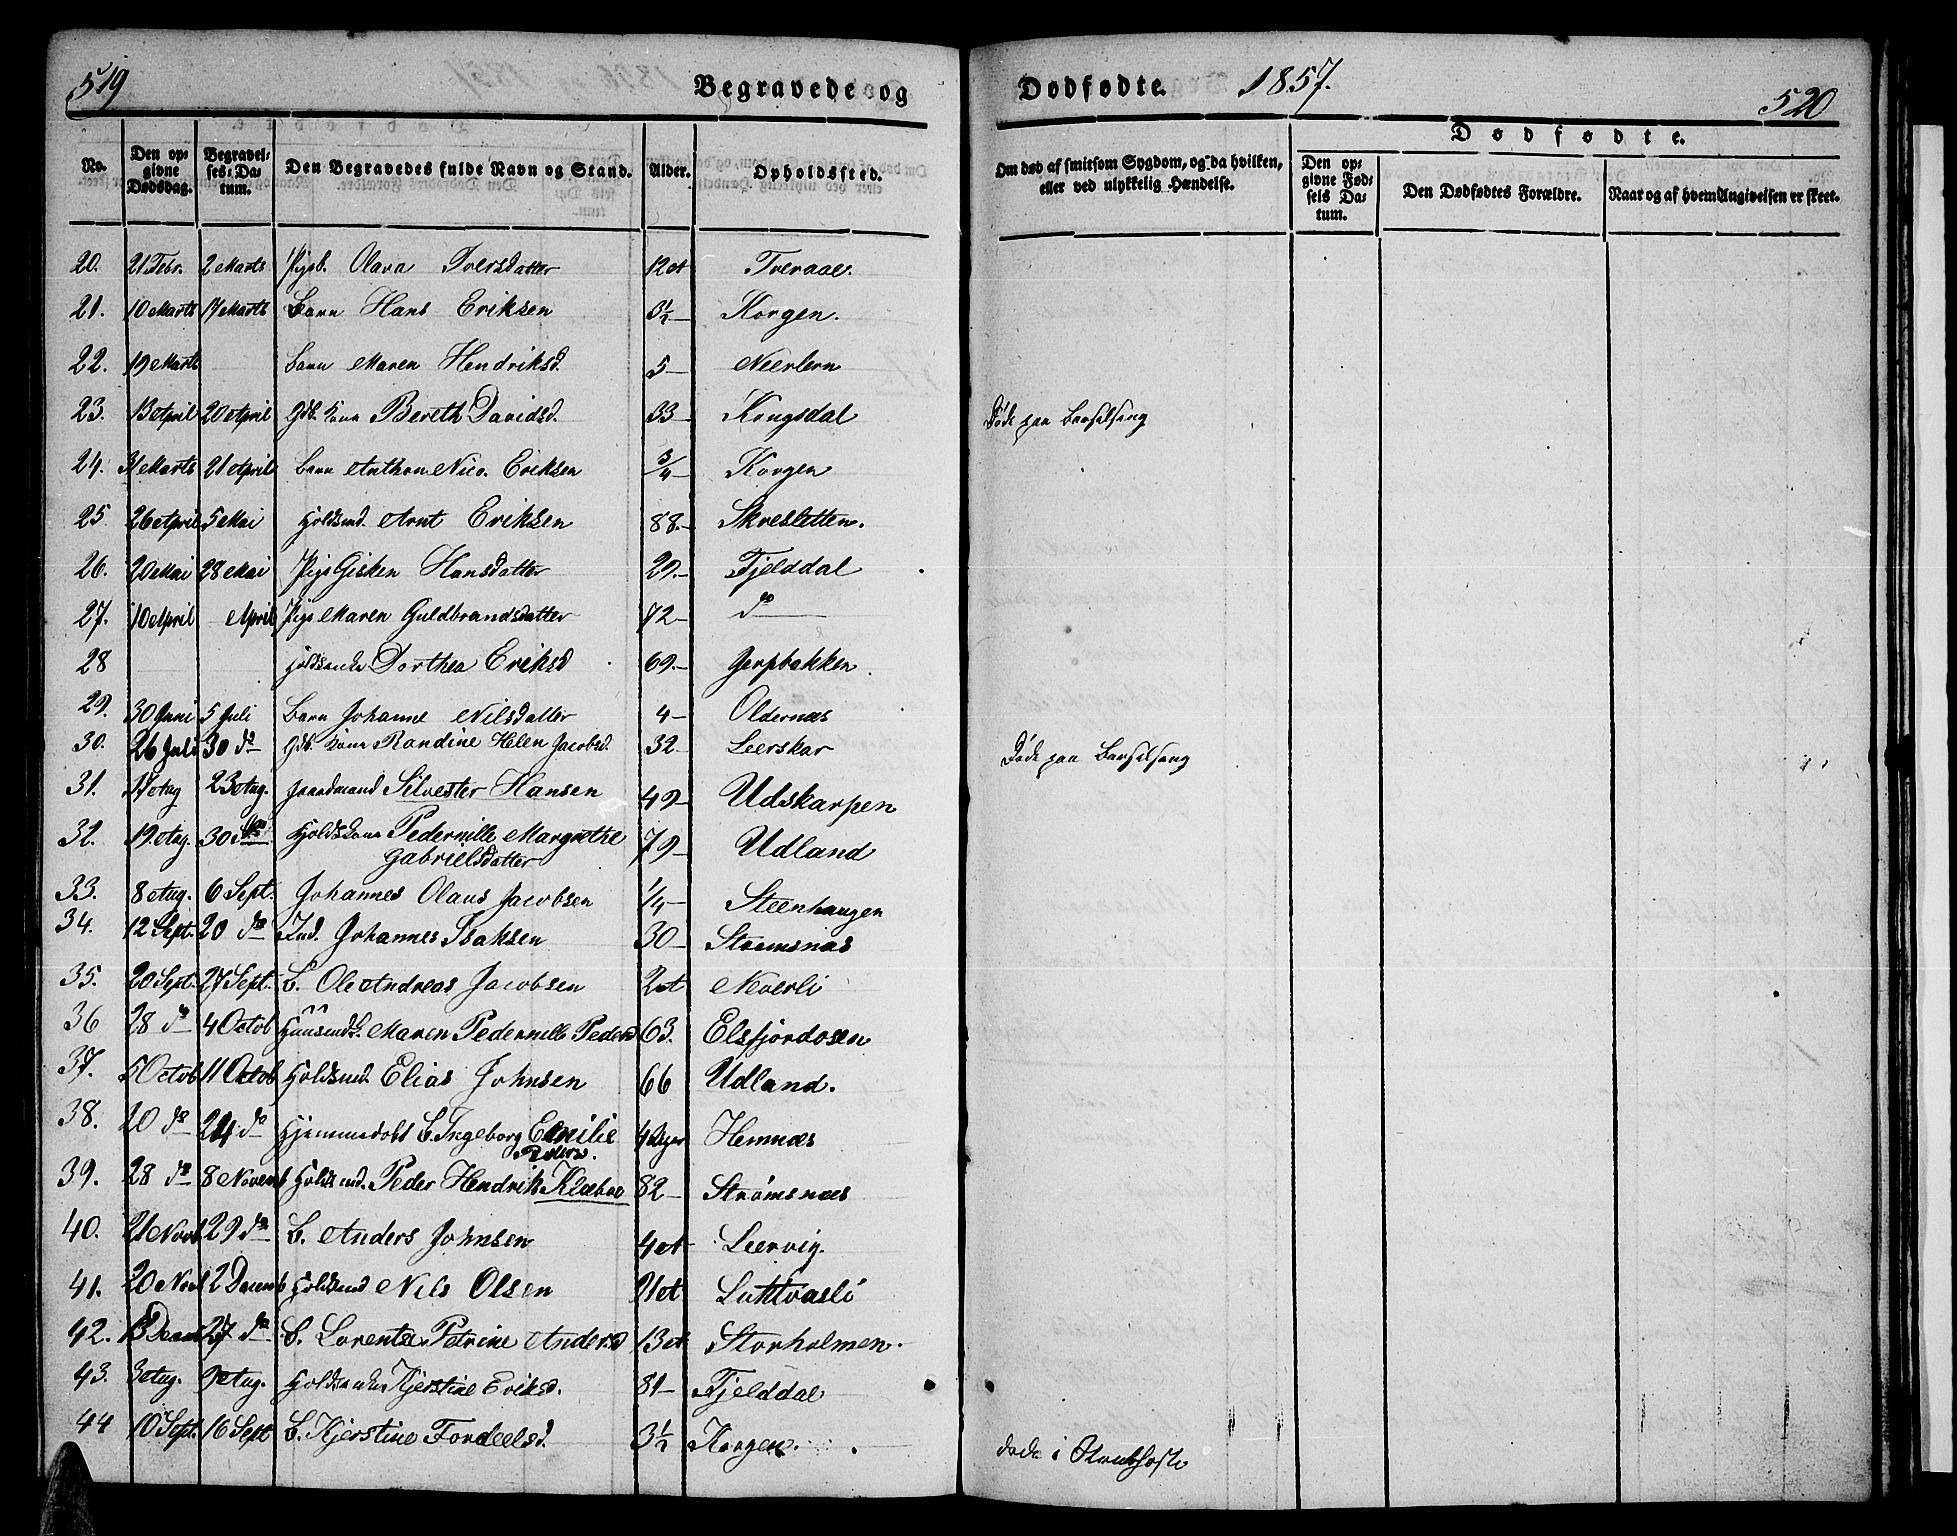 519
Begravede og
Dødfødte.
1857.
520
No.
Den opgivne Dødsdag.
Begravelses-Datum.
Den Begravedes fulde Navn og Stand.
Alder.
Opholdssted.
Om død af smitsom Sygdom, og da hvilken, eller ved ulykkelig Hændelse.
Dødfødte.
Den opgivne Fødsels Datum.
Den Dødfødtes Forældre.
Naar og af hvem Angivelsen er skeet.
20. 21 Febr. 2 Marts Olava Iversdatter 12 Tveraae.
21. 10 Marts 17 Marts Barn Hans Eriksen 3½ Korgen.
22. 19 Marts Barn Maren Hendriksd. 5 Neerlern
23. 13 April 20 April Gdb. Kone Bereth Davidsd. 33 Kongsdal Døde paa Barselseng
24. 31 Marts 21 April Barn Anthon Nico. Eriksen 3/4 Korgen
25 26 April 5 Mai Arnt Eriksen 88. Skresletten.
26. 20 Mai 28 Mai Pige Gisken Hansdatter 29. Fjelddal
27. 10 April April Pige Maren Guldbrandsdatter 72 do
28 Dorthea Eriksd 69. Jerpbakken
29. 30 Juni 5 Juli Barn Johanne Nilsdatter 4 Oldernæs
30. 26 Juli 30 do Gdb. Kone Randine Helen Jacobsd. 32 Leerskar Døde paa Barselseng
31. 17 Aug 23 Aug. Gaardmand Silvester Hansen 49 Udskarpen
32. 19. Aug. 30 Pedernille Margrethe
Gabrielsdatter 79 Udland
33. 8 Aug. 6 Sept. Johannes Olaus Jacobsen 1/4 Steenhaugen
34. 12 Sept. 20 do Ind. Johannes Isaksen 30 Strømsnæs
35. 20 Sept. 27 Sept. B. Ole Andreas Jacobsen 2 Neverli
36 28 do 4 Octob Maren Pedernille Pedersd 63. Elsfjordosen
37. 5 Octob 11 Octob Elias Johnsen 66 Udland.
38. 20 do 24 do Hjemmedøbt B. Ingeborg Emilie
4 Dager Hemnæs
39. 28 do 8 Novemb Peder Hendrik Klæboe 82 Strømsnæs
40. 21 Novb 29 do B. Anders Johnsen 4 Leervig.
41. 20 Novb 2 Decemb Nils Olsen 21 Luktvasli
42. 13 Decemb 27 do B. Lorentse Petrine Andersd 13 Storholmen.
43. 3 Aug. 9 Aug. Kjerstine Eriksd. 81 Fjelddal
44 10 Sept. 16 Sept B. Kjerstine Fordeelsd. 3½ Korgen. døde i Strubhoste